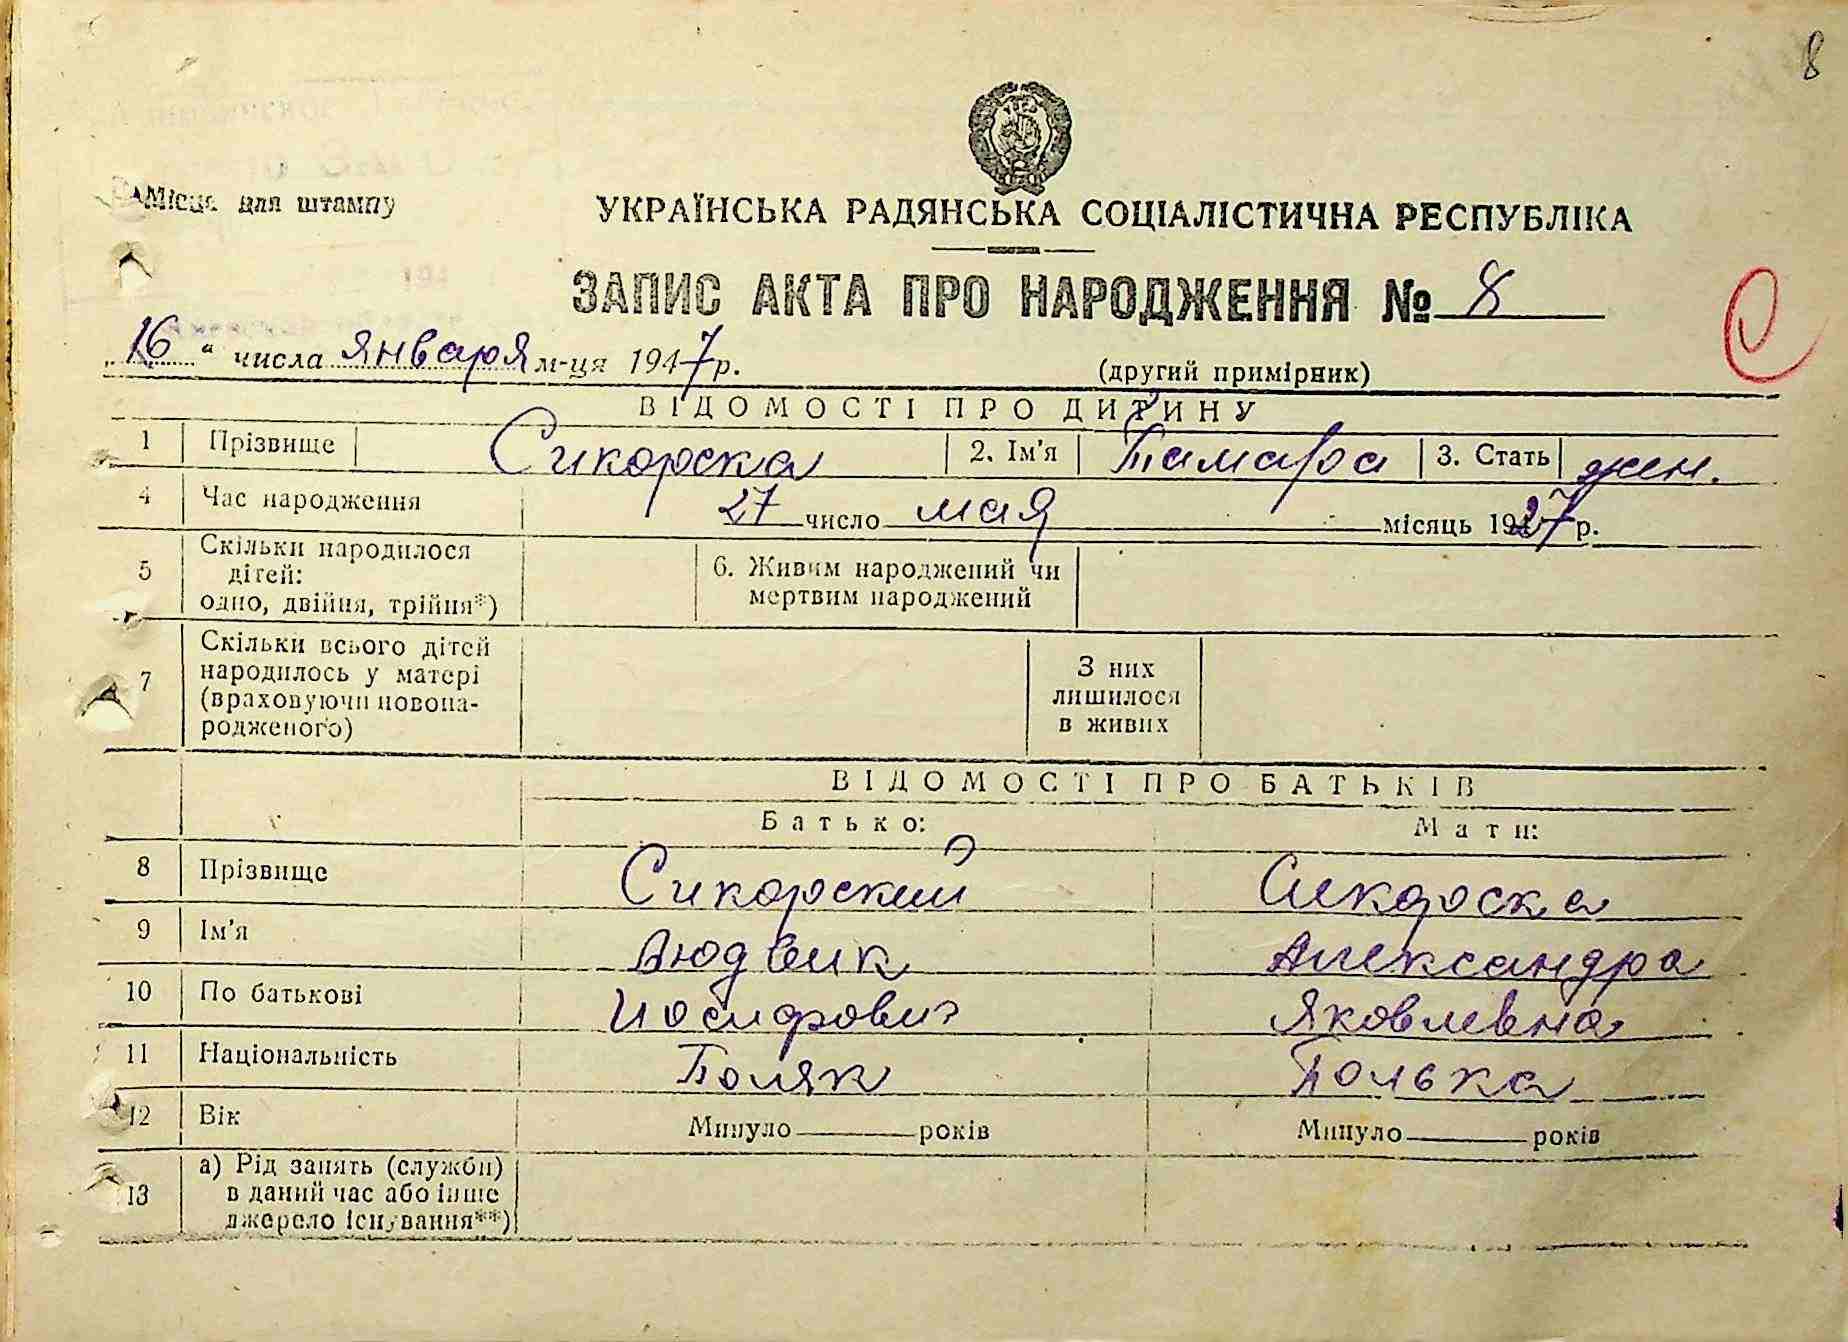 8
Місце для штампу
УКРАЇНСЬКА РАДЯНСЬКА СОЦІАЛІСТИЧНА РЕСПУБЛІКА
ЗАПИС АКТА ПРО НАРОДЖЕННЯ № 8
„16“ числа января м-ця 1947 р.
(другий примірник)
ВІДОМОСТІ ПРО ДИТИНУ
1 Прізвище Сикорска 2. Ім'я Тамара 3. Стать жен.
4 Час народження 27 число мая місяць 1927 р.
5 Скільки народилося дітей: одно, двійня, трійня*) 6. Живим народжений чи мертвим народжений
7 Скільки всього дітей народилось у матері (враховуючи новонародженого) З них лишилося в живих
ВІДОМОСТІ ПРО БАТЬКІВ
Батько: Мати:
8 Прізвище Сикорский Сикорска
9 Ім'я Людвик Александра
10 По батькові Иосифович Яковлевна
11 Національність Поляк Полька
12 Вік Минуло років Минуло років
13 а) Рід занять (служби) в даний час або інше джерело існування**)